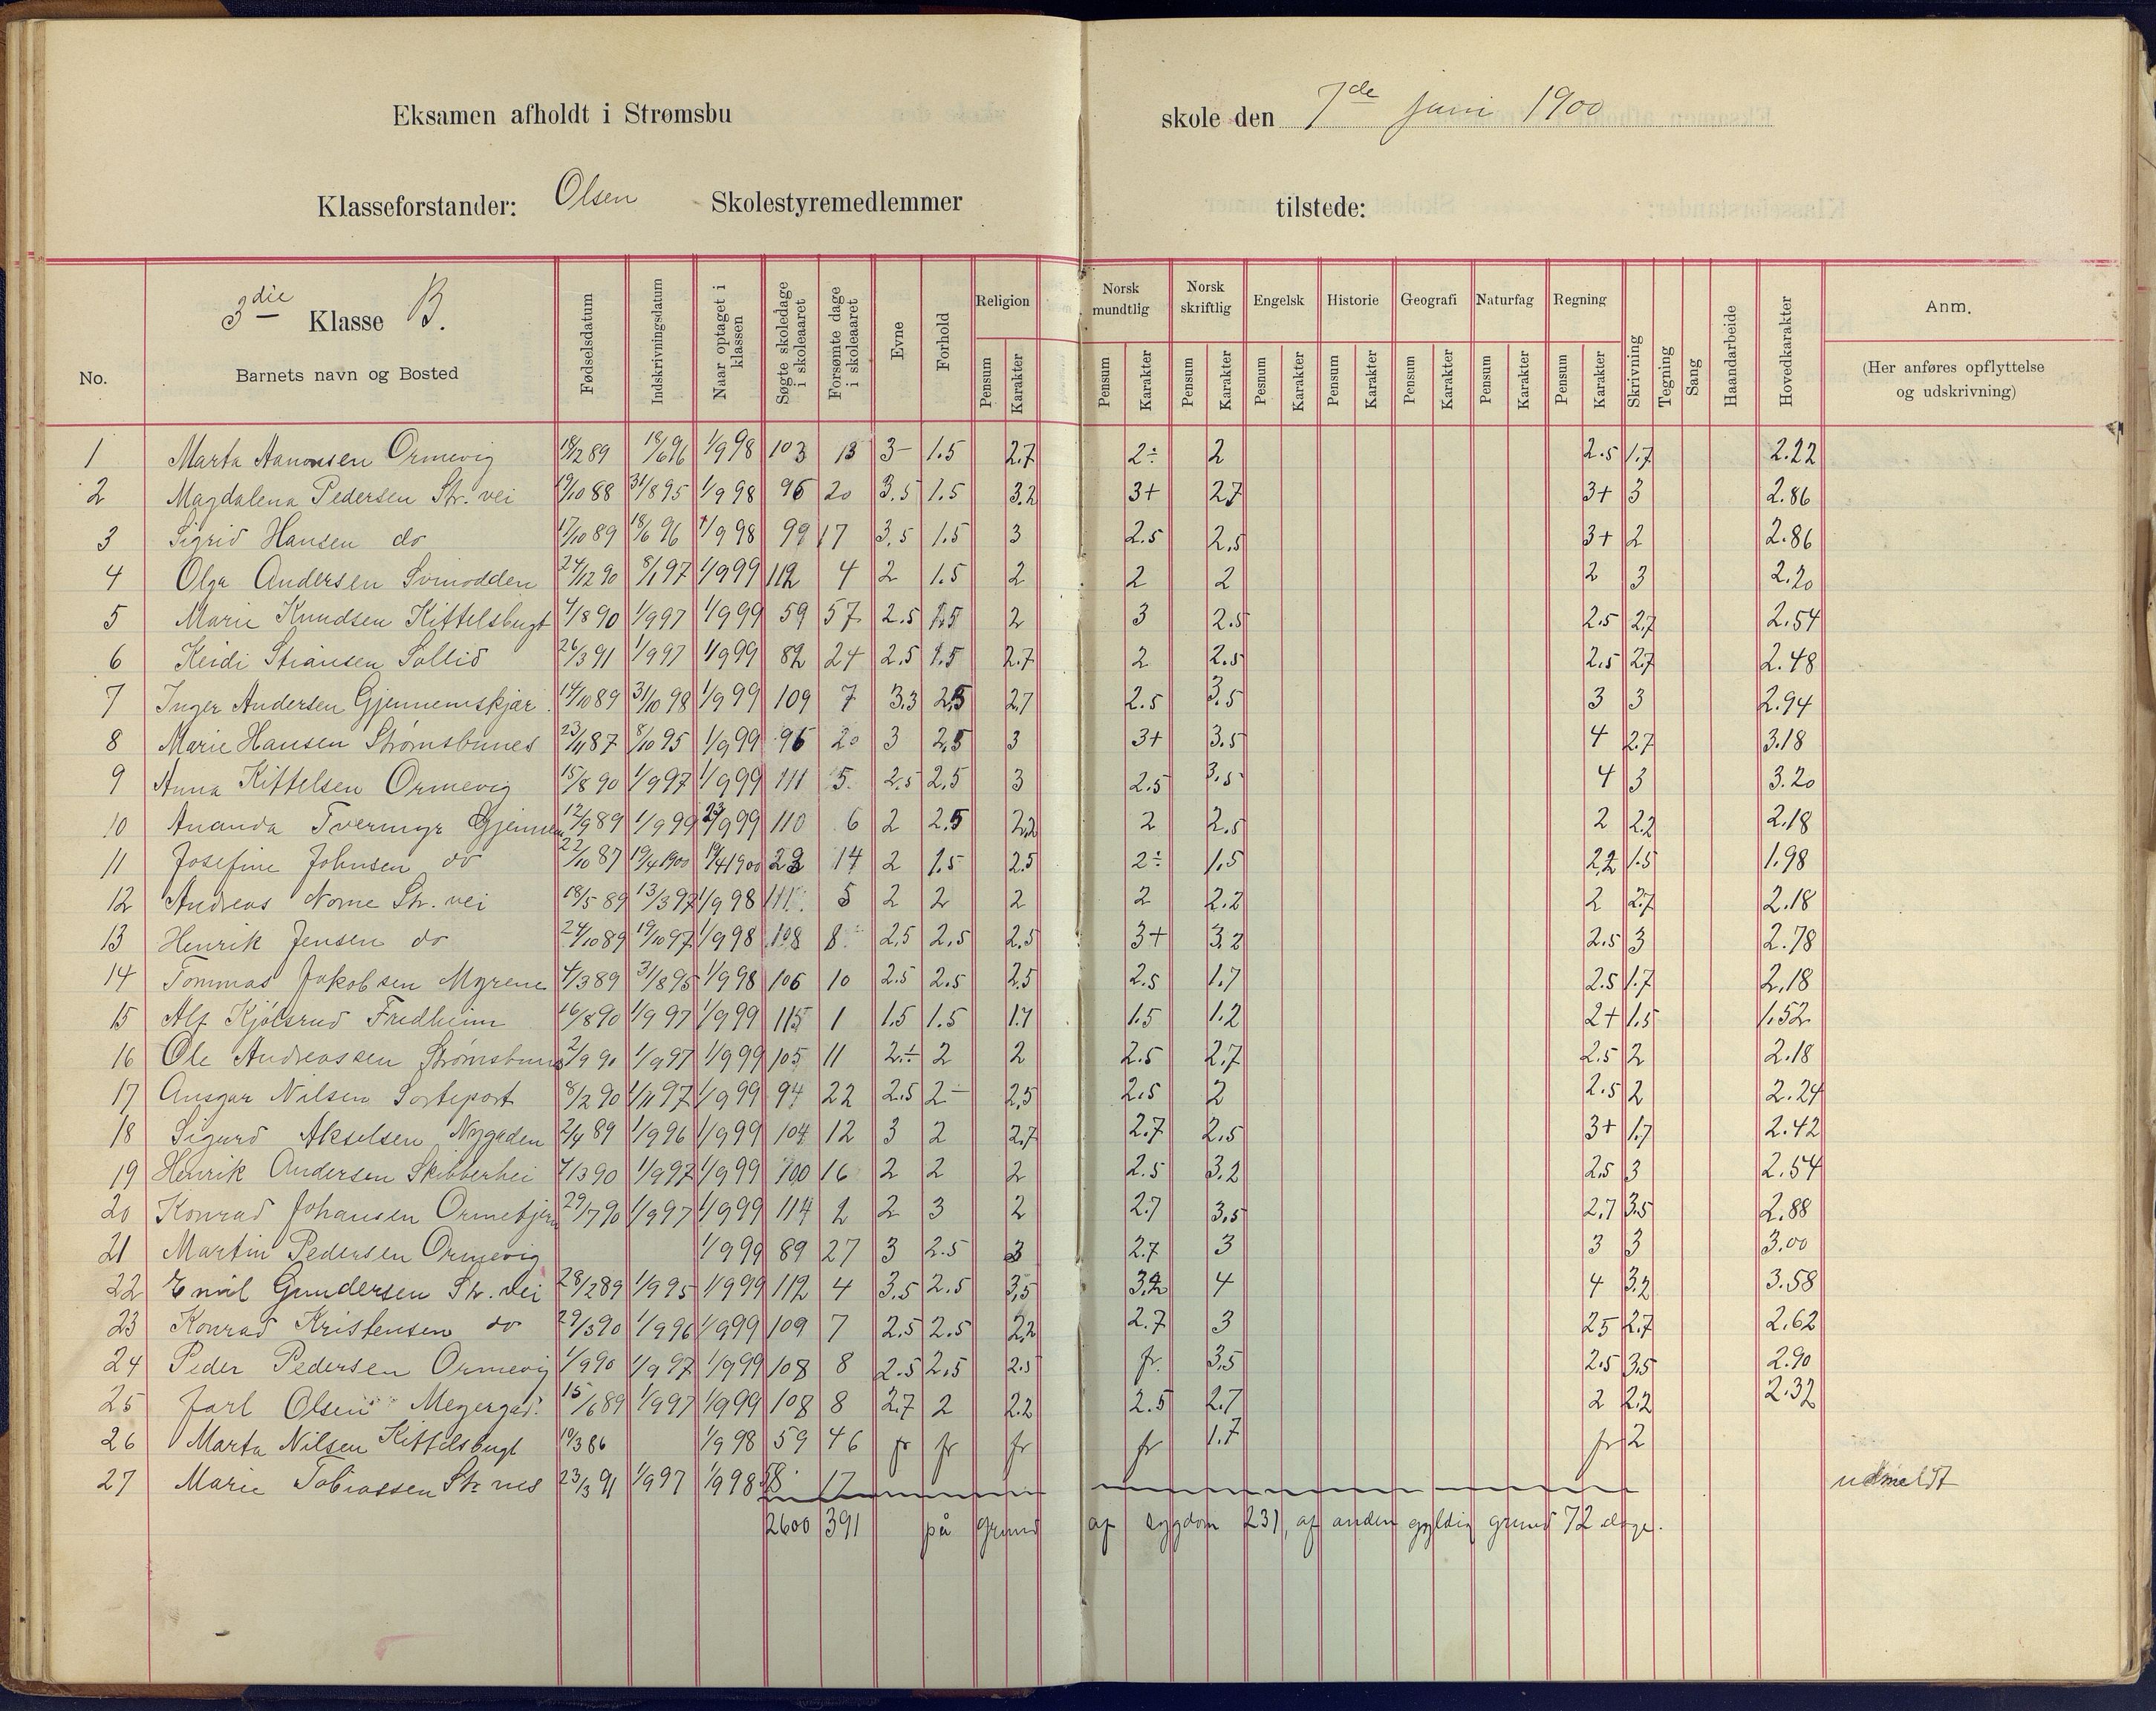 Eksamen afholdt i Strømsbu skole den 7de juni 1900
Klasseforstander: Olsen Skolestyremedlemmer tilstede:
3die Klasse B.
No. Barnets navn og Bosted Fødselsdatum Indskrivningsdatum Naar optaget i klassen Søgte skoledage i skoleaaret Forsømte dage i skoleaaret Evne Forhold Religion Norsk mundtlig Norsk skriftlig Engelsk Historie Geografi Naturfag Regning Skrivning Tegning Sang Haandarbeide Hovedkarakter Anm.
(Her anføres opflyttelse og udskrivning)
Pensum Karakter Pensum Karakter Pensum Karakter Pesnum Karakter Pensum Karakter Pensum Karakter Pensum Karakter Pensum Karakter
1 Marta Aanonsen Ormevig 18/2 89 18/6 96 1/9 98 103 13 3- 1.5 2.7 2÷ 2 2.5 1.7 2.22
2 Magdalena Pedersen Str. vei 19/10 88 31/8 95 1/9 98 96 20 3.5 1.5 3.2 3+ 2.7 3+ 3 2.86
3 Sigrid Hansen do 17/10 89 18/6 96 1/9 98 99 17 3.5 1.5 3 2.5 2.5 3+ 2 2.86
4 Olga Andersen Svinodden 24/12 90 8/1 97 1/9 99 112 4 2 1.5 2 2 2 2 3 2.20
5 Marie Knudsen Kittelsbugt 4/8 90 1/9 97 1/9 99 59 57 2.5 1.5 2 3 2.5 2.5 2.7 2.54
6 Keidi Stiansen Sollid 26/3 91 1/9 97 1/9 99 82 24 2.5 1.5 2.7 2 2.5 2.5 2.7 2.48
7 Inger Andersen Gjennemskjær 14/10 89 31/10 98 1/9 99 109 7 3.3 2.5 2.7 2.5 3.5 3 3 2.94
8 Marie Hansen Strømsbunes 23/11 87 8/10 95 1/9 99 96 20 3 2.5 3 3+ 3.5 4 2.7 3.18
9 Anna Kittelsen Ormevig 15/8 90 1/9 97 1/9 99 111 5 2.5 2.5 3 2.5 3.5 4 3 3.20
10 Ananda Tvermyr Gjennem 12/9 89 1/9 99 23/9 99 110 6 2 2.5 2.2 2 2.5 2 2.2 2.18
11 Josefine Johnsen do 22/10 87 19/4 1900 19/4 1900 23 14 2 1.5 2.5 2÷ 1.5 2.2 1.5 1.98
12 Andreas Norne Str. vei 18/5 89 13/3 97 1/9 98 111 5 2 2 2 2 2.2 2 2.7 2.18
13 Henrik Jensen do 24/10 89 19/10 97 1/9 98 108 8 2.5 2.5 2.5 3+ 3.2 2.5 3 2.78
14 Tommas Jakobsen Myrene 4/3 89 31/8 95 1/9 98 106 10 2.5 2.5 2.5 2.5 1.7 2.5 1.7 2.18
15 Alf Kjølsrud Fredheim 16/8 90 1/9 97 1/9 99 115 1 1.5 1.5 1.7 1.5 1.2 2+ 1.5 1.52
16 Ole Andreassen Strømsbunes 2/9 90 1/9 97 1/9 99 105 11 2÷ 2 2 2.5 2.7 2.5 2 2.18
17 Ansgar Nilsen Sorteport 8/2 90 1/11 97 1/9 99 94 22 2.5 2- 2.5 2.5 2 2.5 2 2.24
18 Sigurd Akselsen Nygaden 2/4 89 1/9 96 1/9 99 104 12 3 2 2.7 2.7 2.5 3+ 1.7 2.42
19 Henrik Andersen Skibberhei 4/3 90 1/9 97 1/9 99 100 16 2 2 2 2.5 3.2 2.5 3 2.54
20 Konrad Johansen Ormetjern 29/7 90 1/9 97 1/9 99 114 2 2 3 2 2.7 3.5 2.7 3.5 2.88
21 Martin Pedersen Ormevig 1/9 99 89 27 3 2.5 3 2.7 3 3 3 3.00
22 Emil Gundersen Str. vei 28/2 89 1/9 95 1/9 99 112 4 3.5 2.5 3.5 3.2 4 4 3.2 3.58
23 Konrad Kristensen do 29/3 90 1/9 96 1/9 99 109 7 2.5 2.5 2.2 2.7 3 25 2.7 2.62
24 Peder Pedersen Ormevig 1/9 90 1/9 97 1/9 99 108 8 2.5 2.5 2.5 fr. 3.5 2.5 3.5 2.90
25 Jarl Olsen Meyergad. 15/6 89 1/9 97 1/9 99 108 8 2.7 2 2.2 2.5 2.7 2 2.2 2.32
26 Marta Nilsen Kittelsbugt 10/3 86 1/9 98 59 46 fr fr fr fr 1.7 fr 2
27 Marie Tobiassen Str nes 23/3 91 1/9 97 1/9 98 58 17 udmeldt
2600 391 på grund af sygdom 231, af anden gyldig grund 72 dage.